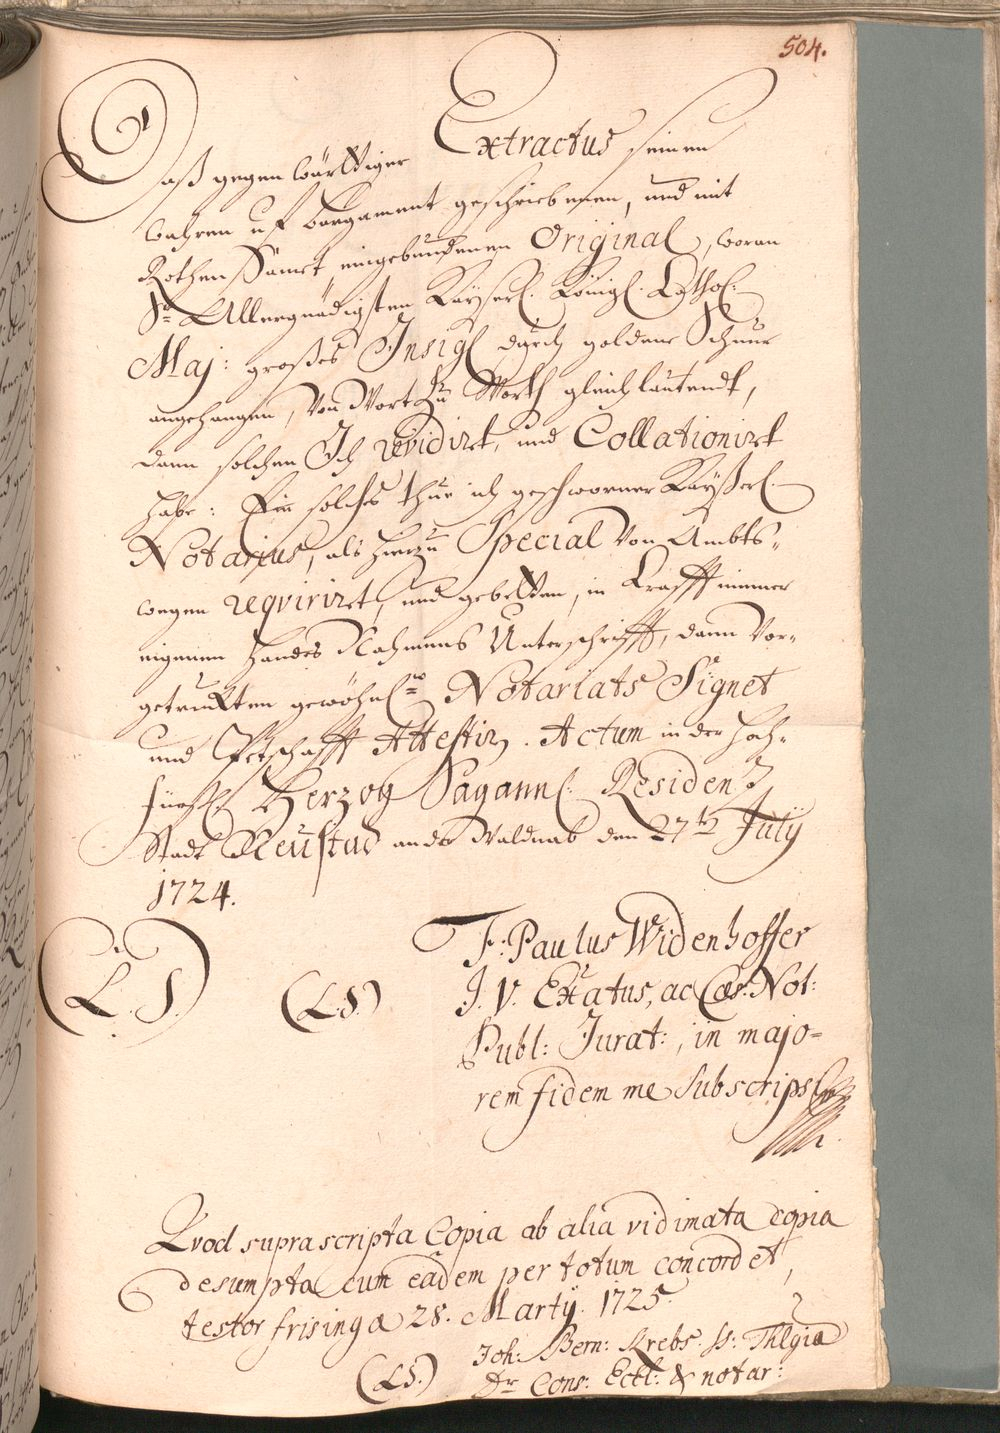 504.
Daß gegenwärttiger Extractus seinen
wahren uf Pergament geschriebenen, und mit
Rothen Samet eingebundenen Original, woran
Allergnädigsten Kayserl. Königl. Cathol:
Maj: großes Insigl durch goldene Schnür
angehangen, Von Wort zu Worth gleichlautendt,
dann solchen Ich revidirt, und Collationirt
habe: Ein solches thue ich geschworner Kayßerl.
Notarius, als hierzu Special Von Ambts-
wegen reqvirirt, und gebetten, in Krafft meiner
eigenen Handts Nahmens Unterschrifft, dann Vor-
getrukten gewöhnl. Notariats Signet
und Pettschafft Attestir. Actum in der Hoch-
fürstl. Herzog Saganl. Residenz
Stadt Neustad an der Waldnab den 27ts July
1724.
L. S. (LS.) F: Paulus Widenhoffer
J. V. Exatus, ac Caes: Not:
Publ: Jurat:, in majo-
rem fidem me subscripsi
Qvod suprascripta Copia ab alia vidimata copia
desumpta cum eadem per totum concordet,
testor frisinga 28. Martij. 1725.
(LS.) Joh: Bern: Krebs ss: Thlgia
Dr Cons: Eccl: & notar: